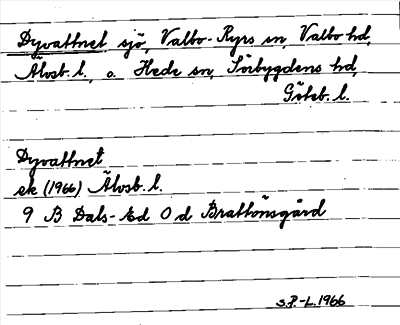 Dyvattnet, sjö, Valbo-Ryrs sn, Valbo hd,
Älvsb. l., o. Hede sn, Sörbygdens hd,
Göteb. l.
Dyvattnet
ek (1966) Älvsb. l.
9 B Dals-Ed 0 d Brattönsgård
S.P.-L. 1966